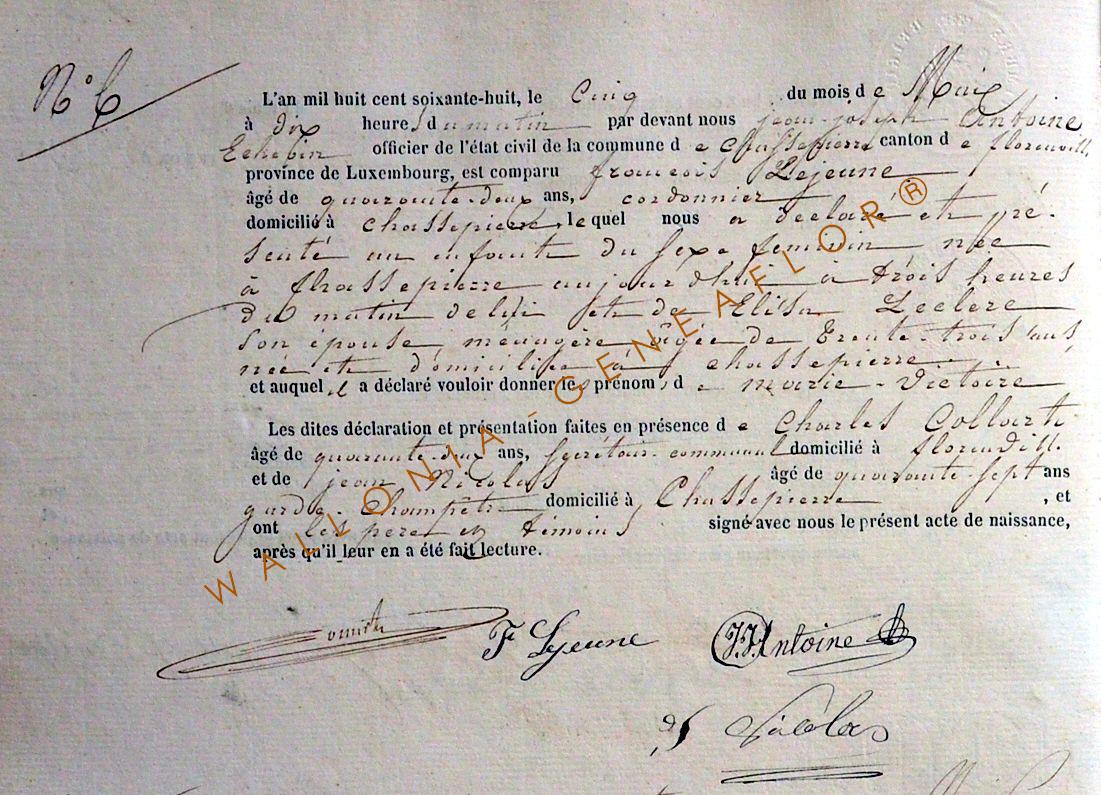 N° 6
L'an mil huit cent soixante-huit, le Cinq du mois de Mai
à dix heures du matin par devant nous jean-joseph Antoine
Echebin officier de l'état civil de la commune de Chassepierre canton de florenvill
province de Luxembourg, est comparu francois Lejeune
âgé de quarante-deux ans, cordonnier
domicilié à Chassepierre lequel nous a declaré et pré-
senté un enfant du sexe feminin née
à Chassepierre aujourd'hui à trois heures
du matin de lui et de Elisa Leclere
son épouse ménagère âgée de trente-trois ans
née et domiciliée à Chassepierre
et auquel il a déclaré vouloir donner les prénoms de marie-Victoire
Les dites déclaration et présentation faites en présence de Charles Collart
âgé de quarante-deux ans, secrétaire communal domicilié à florenvill.
et de jean Nicolas âgé de quarante-sept ans
garde-Champêtre domicilié à Chassepierre, et
ont les pere et témoins signé avec nous le présent acte de naissance,
après qu'il leur en a été fait lecture.
F Lejeune
J.J. Antoine
Nicolas
WALLONIA - GENEAFLOR ®